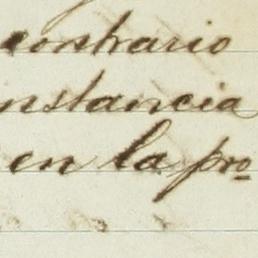 contrario
nstancia
en la pro